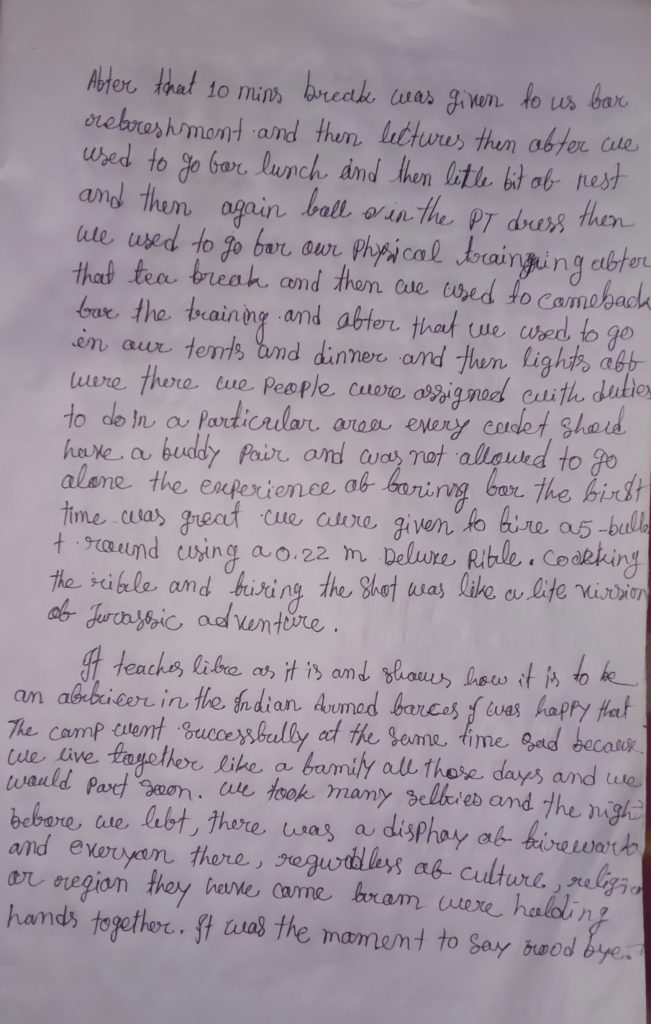 After that 10 mins break was given to us for
refereshment and then lectures then after we
used to go for lunch and then little bit of rest
and then again fall in the PT dress then
we used to go for our Physical trainging after
that tea break and then we used to comeback
for the training and after that we used to go
in our tents and dinner and then lights off
were there we people were assigned with duties
to do in a particular area every cadet should
have a buddy pair and was not allowed to go
alone the experience of firing for the first
time was great we were given to fire a 5-bulle
t round using a 0.22 m Deluxe Rifle. Cockking
the rifle and firing the shot was like a life
of Jurassic adventure.
It teaches life as it is and shows how it is to be
an officer in the Indian Armed forces I was happy that
The camp went successfully at the same time sad because
we live together like a family all those days and we
would part soon. we took many selfies and the night
before we left, there was a display of firework
and everyon there, regardless of culture, religion
or region they have come from were holding
hands together. It was the moment to say good bye.